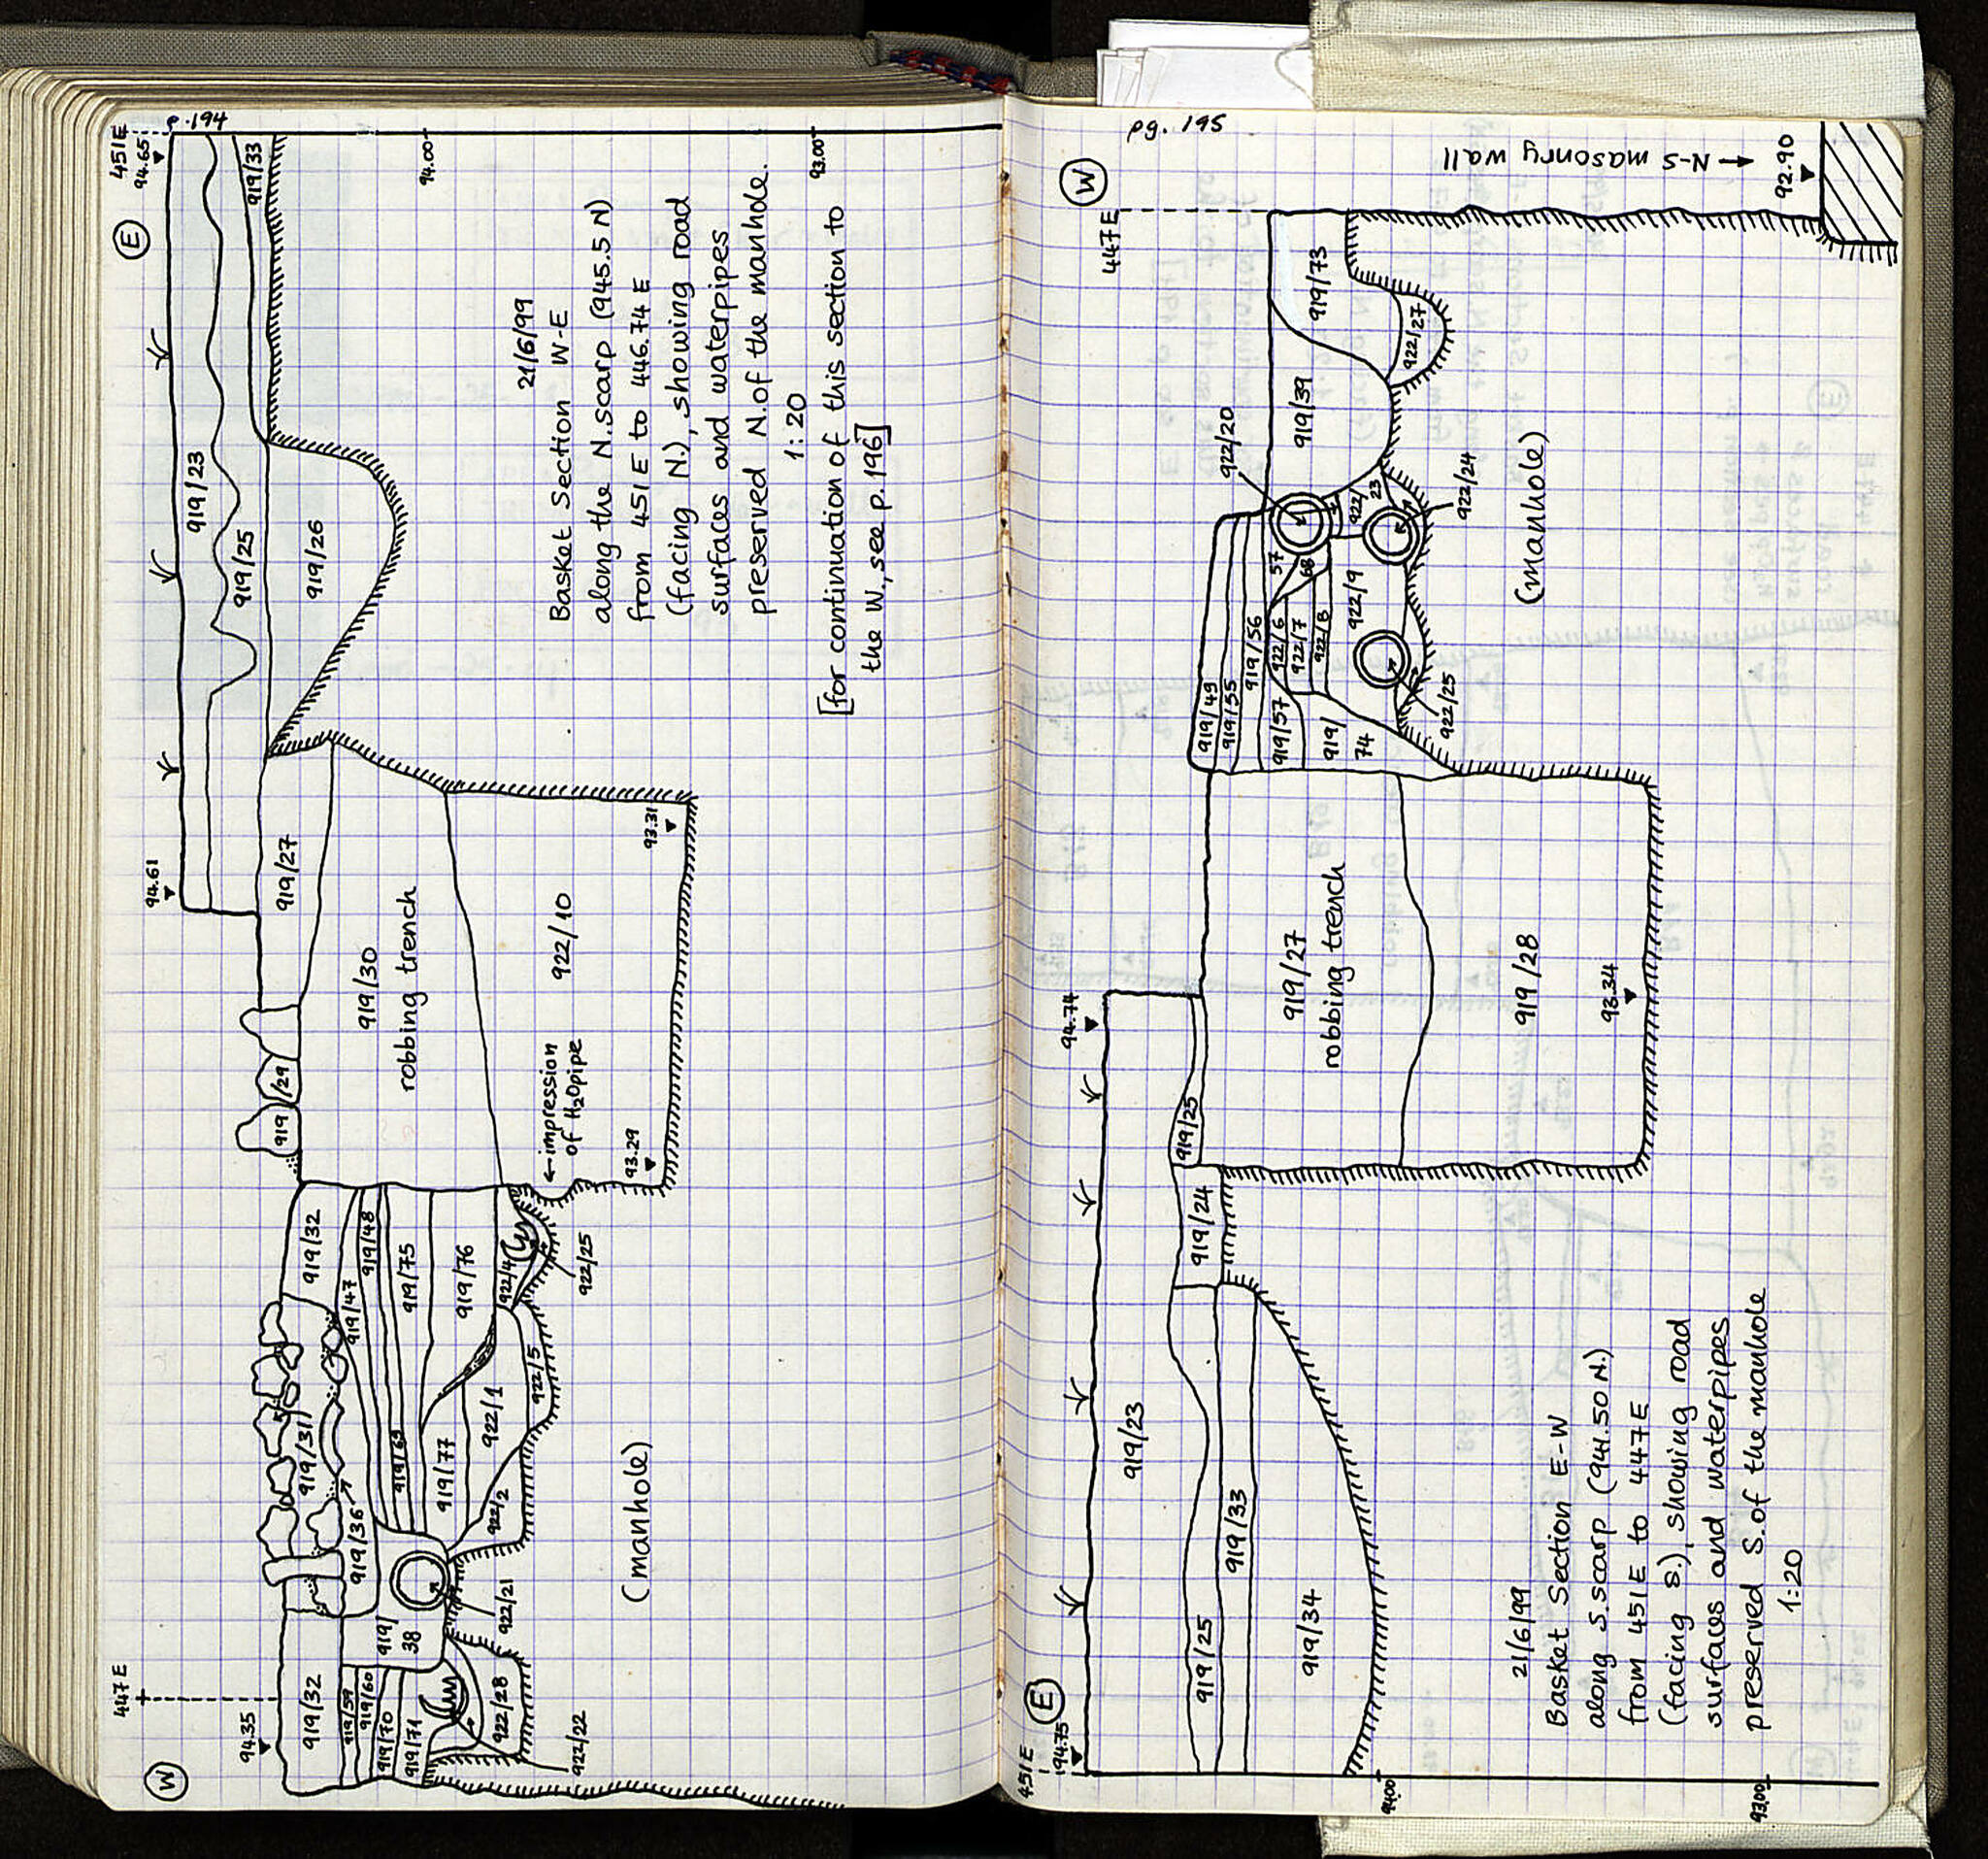 p.194
W
E
447E
451E
94.35
94.61
94.65
919/23
919/25
919/33
919/26
919/27
94.00
93.00
919/29
919/30
robbing trench
922/10
93.31
93.29
←impression
of H₂O pipe
919/32
919/31
919/32
919/47
919/48
919/36
919/75
919/69
919/76
919/77
922/4
922/1
922/2
922/5
922/25
919/38
919/59
919/60
919/70
919/71
922/28
922/21
922/22
(manhole)
21/6/99
Basket Section W-E
along the N.scarp (945.5 N)
from 451 E to 446.74 E
(facing N.), showing road
surfaces and waterpipes
preserved N. of the manhole.
1:20
[for continuation of this section to
the W., see p.196]
pg. 195
E
W
451E
447E
94.75
94.74
919/23
919/25
919/24
919/25
919/33
919/34
94.00
93.00
919/27
robbing trench
919/28
93.34
919/49
919/55
919/56
919/57
919/74
922/6
922/7
922/8
922/9
57
68
922/20
922/23
922/24
922/25
919/39
919/73
922/27
(manhole)
→ N-S masonry wall
92.90
21/6/99
Basket Section E-W
along S.scarp (941.50 N.)
from 451E to 447E
(facing S.), showing road
surfaces and waterpipes
preserved S. of the manhole
1:20